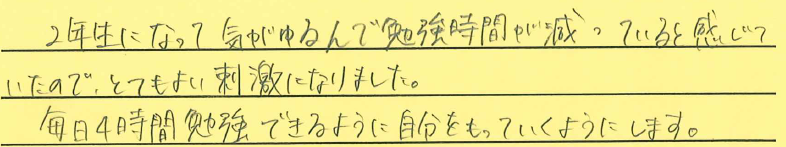 2年生になって気がゆるんで勉強時間が減っていると感じて
いたので、とてもよい刺激になりました。
毎日4時間勉強できるように自分をもっていくようにします。